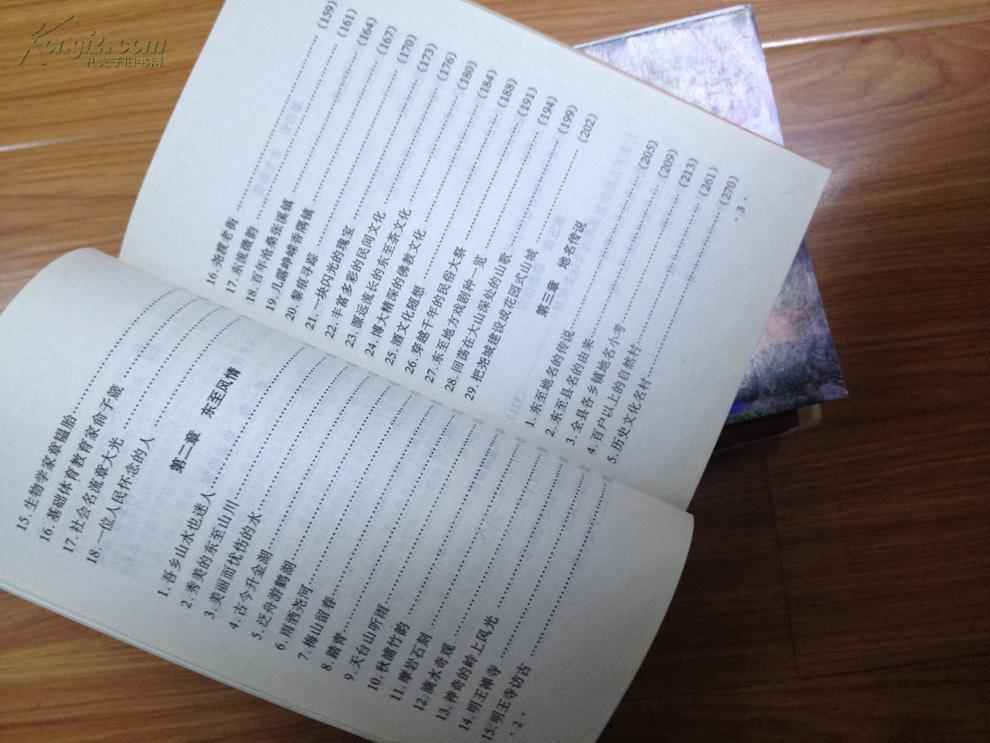 Kongfz.com
孔夫子旧书网
15. 生物学家章韫胎
16. 基础体育教育家俞子箴
17. 社会名流章大光
18. 一位人民怀念的人
第二章 东至风情
1. 吾乡山水也迷人
2. 秀美的东至山川
3. 美丽而忧伤的水
4. 古今升金湖
5. 泛舟游鹤湖
6. 雨洒尧河
7. 梅山留春
8. 踏青
9. 天台山听雨
10. 秋浦竹韵
11. 摩岩石刻
12. 滴水奇观
13. 神奇的岭上风光
14. 明王禅寺
15. 明王寺访古
· 2 ·
16. 尧渡老街 (159)
17. 东流微韵 (161)
18. 百年沧桑张溪镇 (164)
19. 几露峥嵘香隅镇 (167)
20. 黎痕寻踪 (170)
21. 一块闪光的瑰宝 (173)
22. 丰富多彩的民间文化 (176)
23. 源远流长的东至茶文化 (180)
24. 博大精深的佛教文化 (184)
25. 酒文化随想 (188)
26. 穿越千年的民俗大祭 (191)
27. 东至地方戏剧种一览 (194)
28. 回荡在大山深处的山歌 (199)
29. 把尧城建设成花园式山城 (202)
第三章 地名传说
1. 东至地名的传说 (205)
2. 东至县名的由来 (209)
3. 全县各乡镇地名小考 (213)
4. 百户以上的自然村 (261)
5. 历史文化名村 (270)
· 3 ·